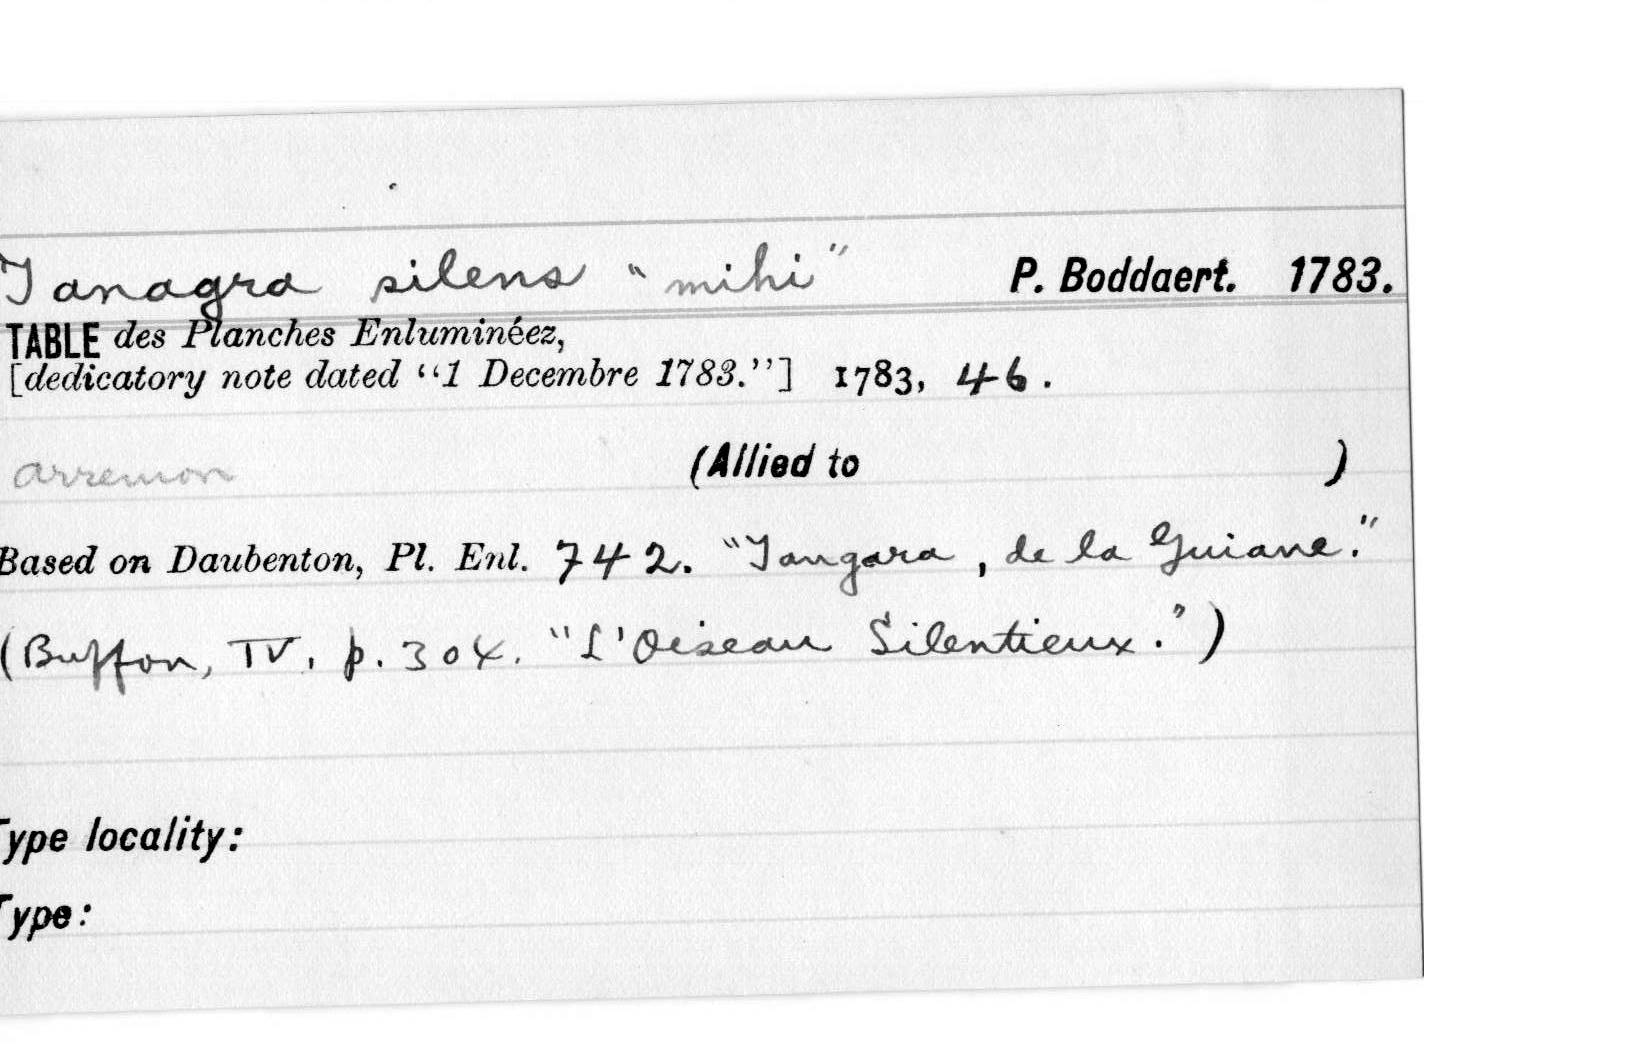 Tanagra silens "mihi" P. Boddaert. 1783.
TABLE des Planches Enluminéez,
[dedicatory note dated "1 Decembre 1783."] 1783, 46.
Arremon (Allied to )
Based on Daubenton, Pl. Enl. 742. "Tangara, de la Guiane."
(Buffon, IV, p. 304. "L'Oiseau Silentieux.")
Type locality:
Type: